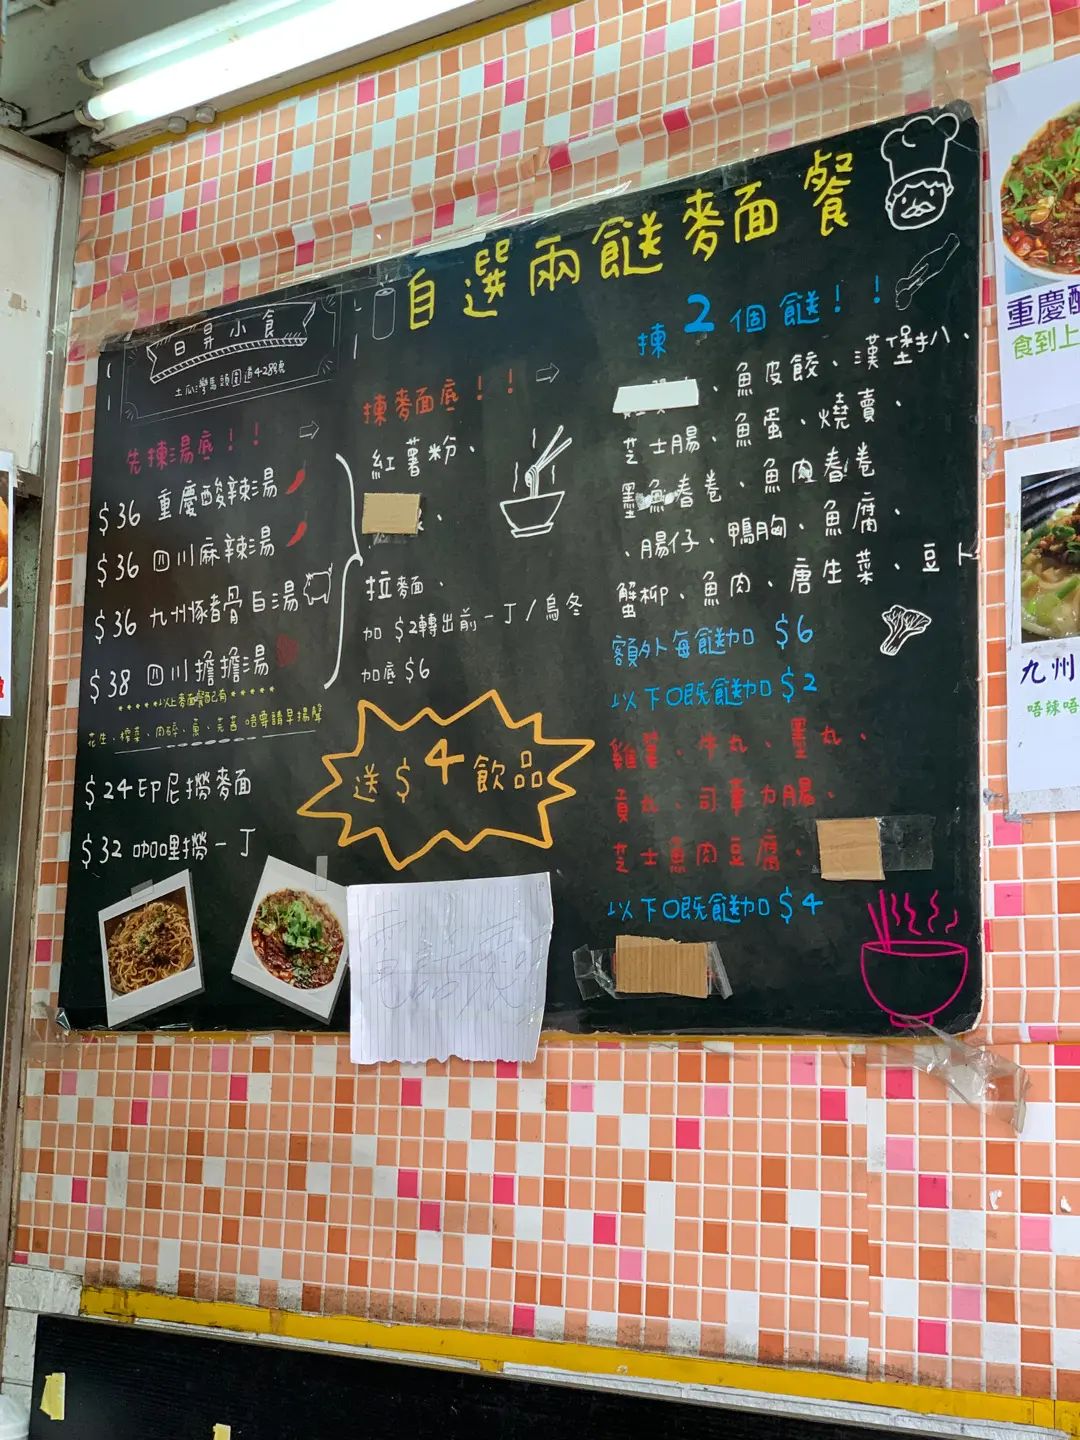 自選兩餸麥面餐
日昇小食
土瓜灣馬頭圍道428號
先揀湯底！！
$36 重慶酸辣湯
$36 四川麻辣湯
$36 九州豚骨白湯
$38 四川擔擔湯
*****以上麥面餐已有*****
花生、榨菜、肉碎、蔥、芫茜 唔要請早揚聲
$24 印尼撈麥面
$32 咖哩撈一丁
揀麥面底！！
紅薯粉、
拉麥面、
加$2轉出前一丁/烏冬
加底$6
送$4飲品
揀2個餸！！
魚皮餃、漢堡扒、
芝士腸、魚蛋、燒賣、
墨魚春卷、魚肉春卷
、腸仔、鴨胸、魚腐、
蟹柳、魚肉、唐生菜、豆卜
額外每餸加$6
以下O既餸加$2
雞薯、牛丸、墨丸、
貢丸、司華力腸、
芝士魚肉豆腐、
以下O既餸加$4
重慶酸
食到上
九州
唔辣唔